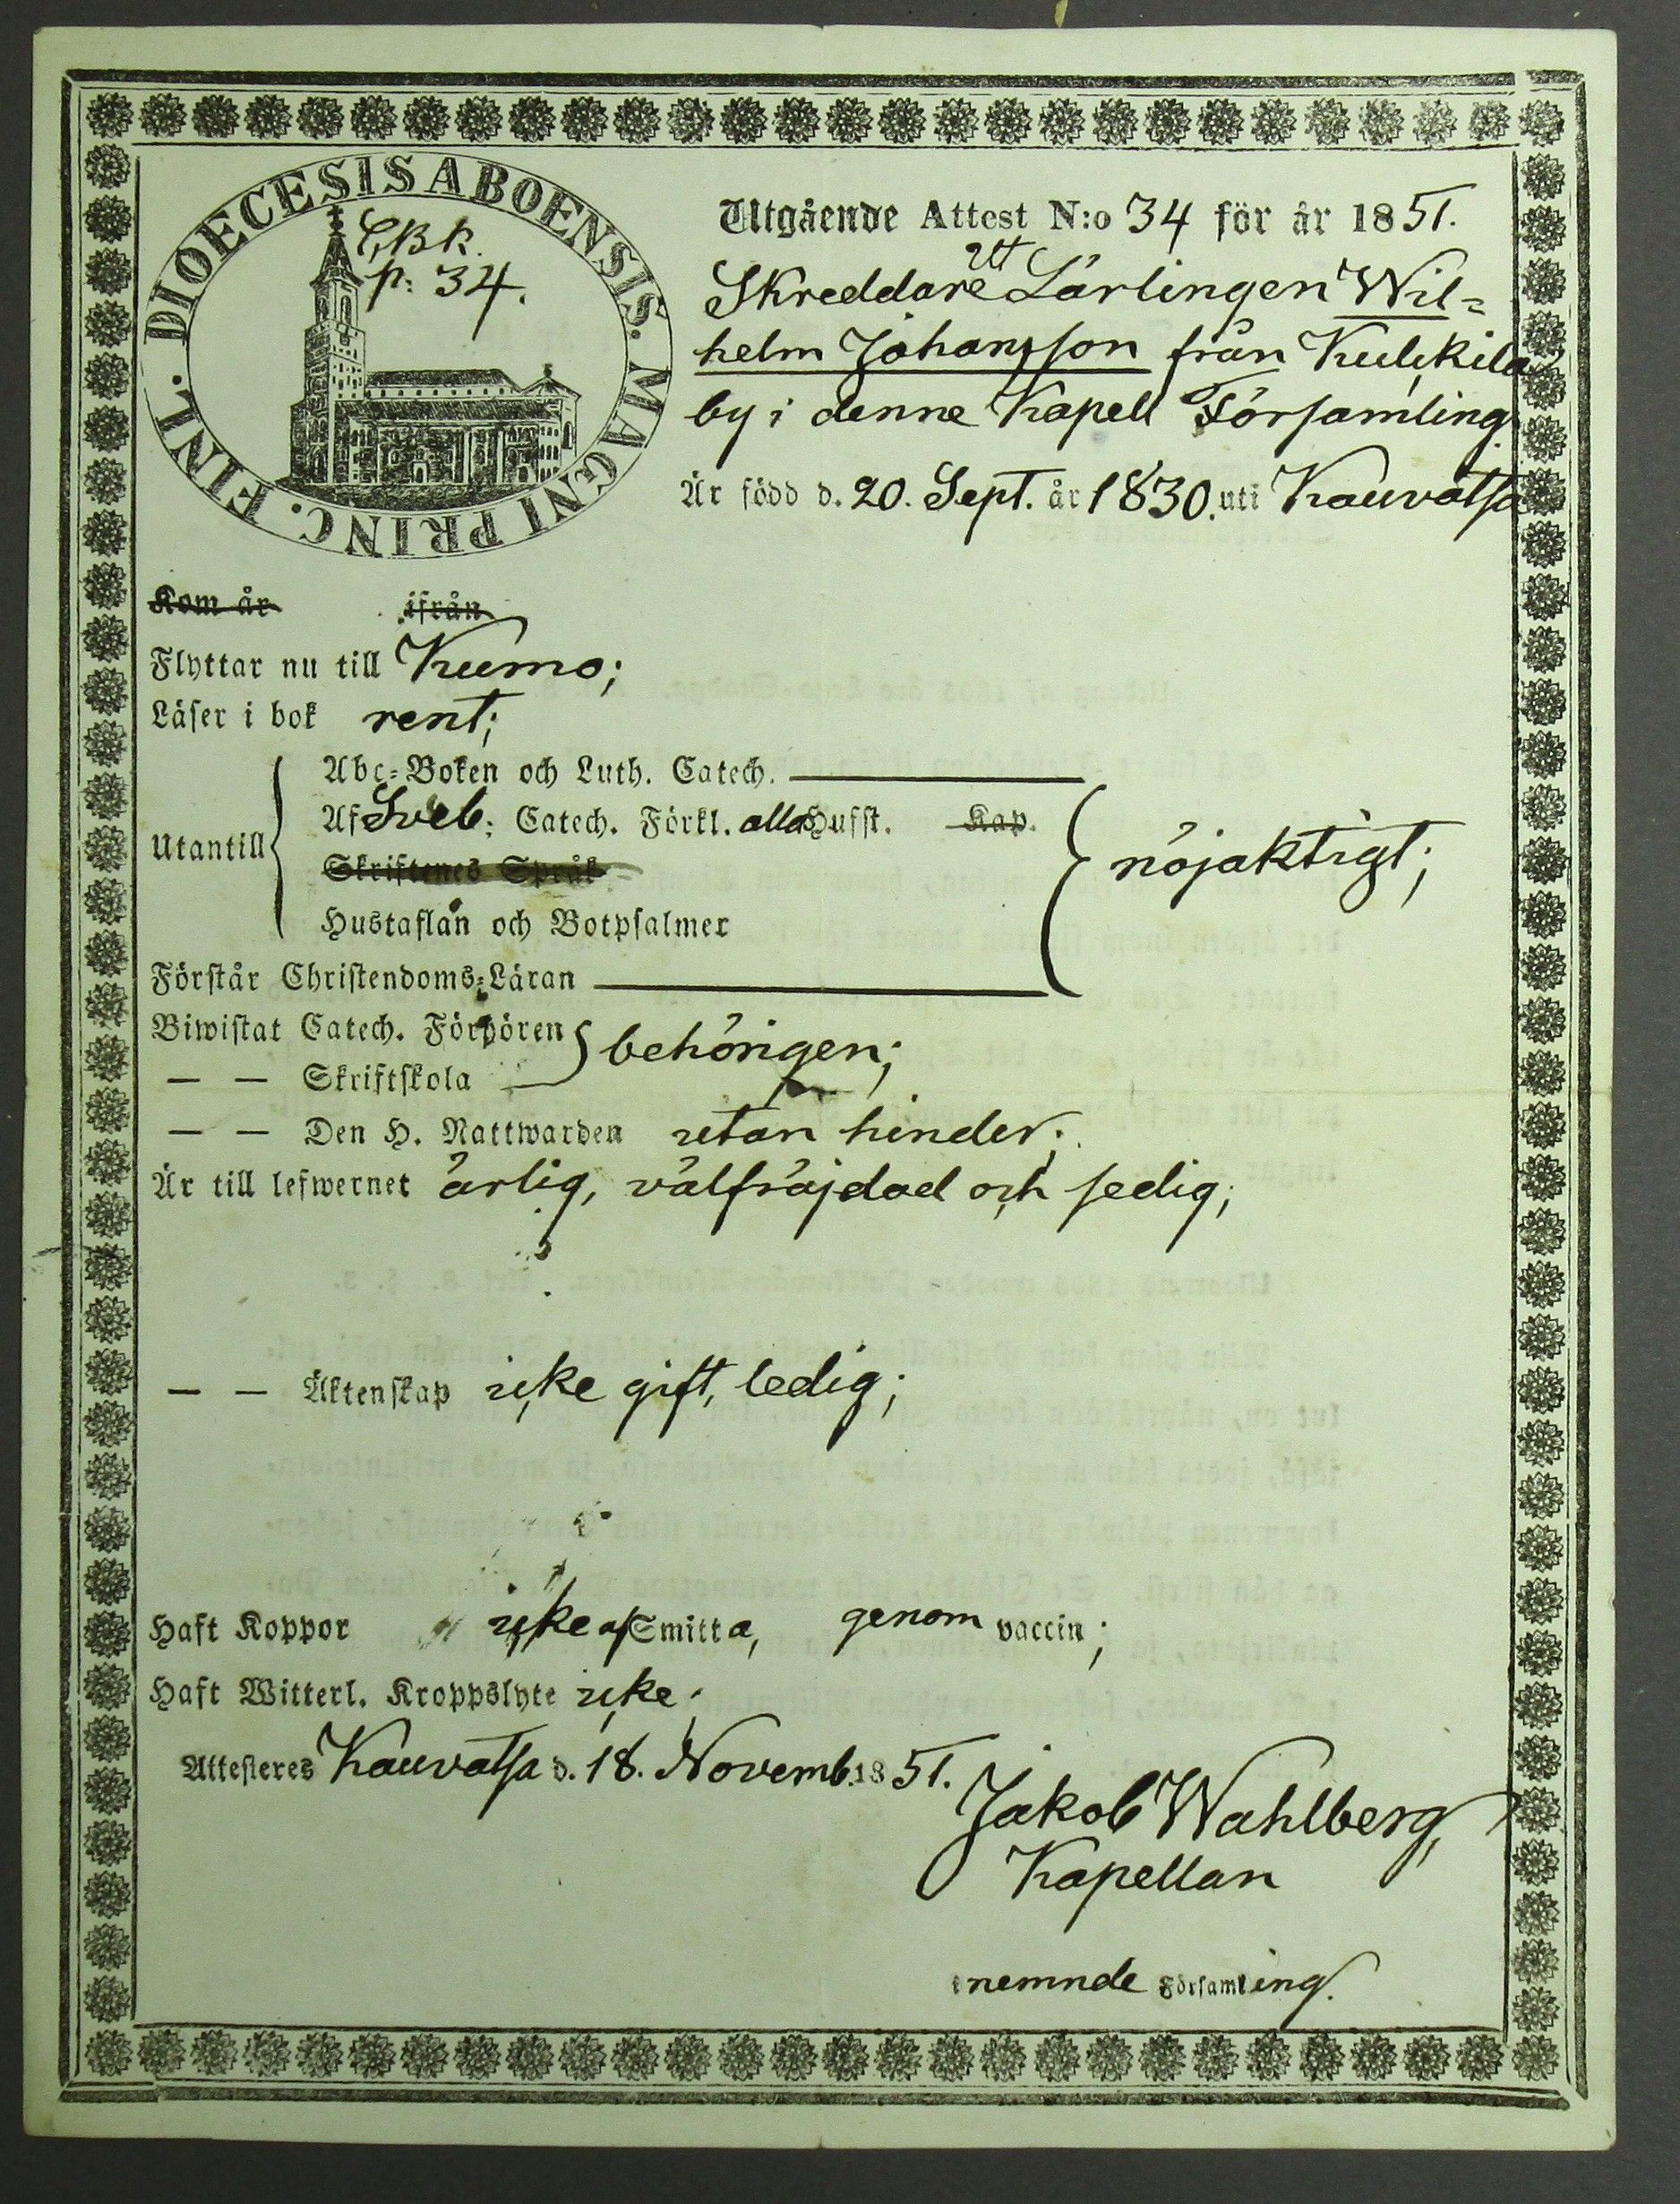 DIOECESIS ABOENSIS. MAGNI PRINC. FINL.
CBk.
p: 34.
Utgående Attest N:o 34 för år 1851.
Skreddare Lärlingen Wil-
helm Johansson från Kulkkila
by i denne Kapell Församling.
Är född d. 20. Sept. år 1830. uti Kauvatsa
Kom år ifrån
Flyttar nu till Kumo;
Läser i bok rent;
Utantill
Abc-Boken och Luth. Catech.
Af Sveb: Catech. Förkl. alla Hufst. Kap.
Skriftenes Språk
Hustaflan och Botpsalmer
nöjaktigt;
Förstår Christendoms-Läran
Biwistat Catech. Förhören
— — Skriftskola
behörigen;
— — Den H. Nattwarden utan hinder;
Är till lefwernet ärlig, välfräjdad och sedig;
— — Äktenskap icke gift, ledig;
Haft Koppor icke af Smitta, genom vaccin;
Haft Witterl. Kroppslyte icke;
Attesteres Kauvatsa d. 18. Novemb. 1851.
Jakob Wahlberg,
Kapellan
i nemnde Församling.